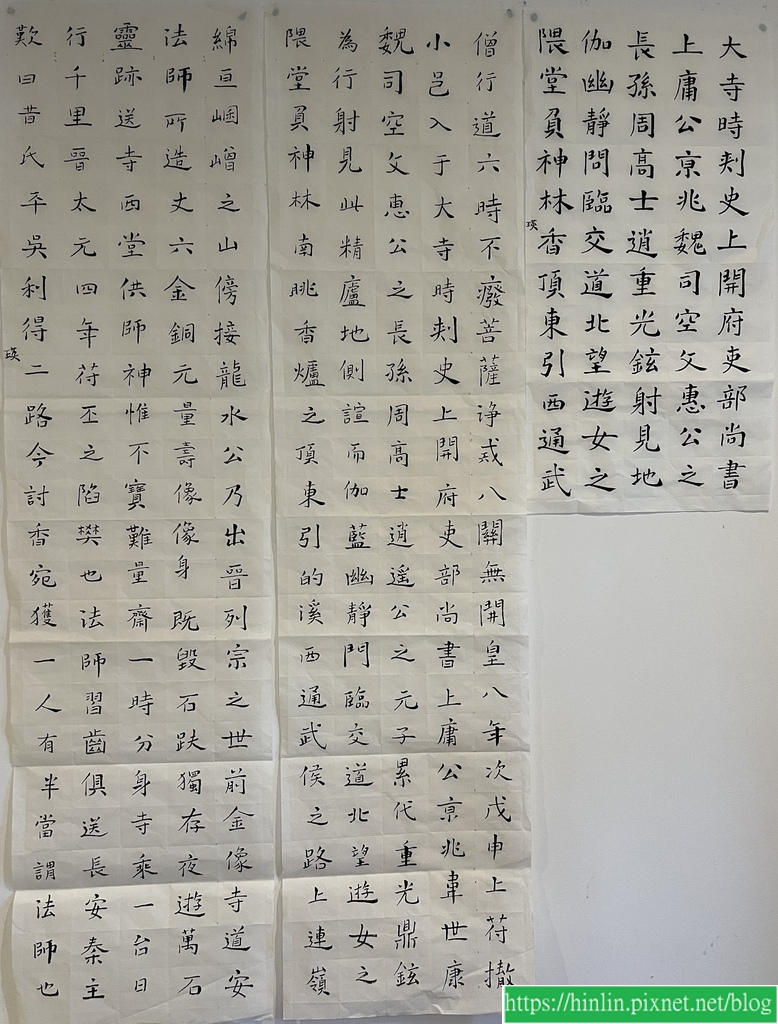 大寺時刾史上開府吏部尚書
上庸公亰兆魏司空文惠公之
長孫周高士逍重光鉉射見地
伽幽靜問臨交道北望遊女之
隈堂負神林香頂東引西通武
瑛
僧行道六時不癈菩薩諍戎八關無開皇八年次戊申上苻撤
小邑入于大寺時刾史上開府吏部尚書上庸公亰兆韋世康
魏司空文惠公之長孫周高士逍遥公之元子累代重光鼎鉉
為行射見此精廬地側諠而伽藍幽靜門臨交道北望遊女之
隈堂負神林南眺香爐之頂東引的溪西通武侯之路上連嶺
綿亘嶒之山傍接龍水公乃出晉列宗之世前金像寺道安
法師所造丈六金銅元量壽像像身既毀石趺獨存夜遊萬石
靈跡送寺西堂供師神惟不寶難量齋一時分身寺乘一台日
行千里晉太元四年苻丕之陷樊也法師習齒俱送長安秦主
歎曰昔氏平吳利得二路今討香宛獲一人有半當謂法師也
瑛
https://hinlin.pixnet.net/blog